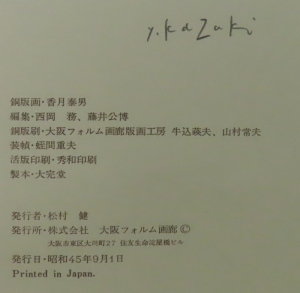 y. kazuki
銅版画・香月泰男
編集・西岡 務、藤井公博
銅版刷・大阪フォルム画廊版画工房 牛込蕻夫、山村常夫
装幀・蛭間重夫
活版印刷・秀和印刷
製本・大完堂
発行者・松村 健
発行所・株式会社 大阪フォルム画廊 ©
大阪市東区大川町27 住友生命淀屋橋ビル
発行日・昭和45年9月1日
Printed in Japan.